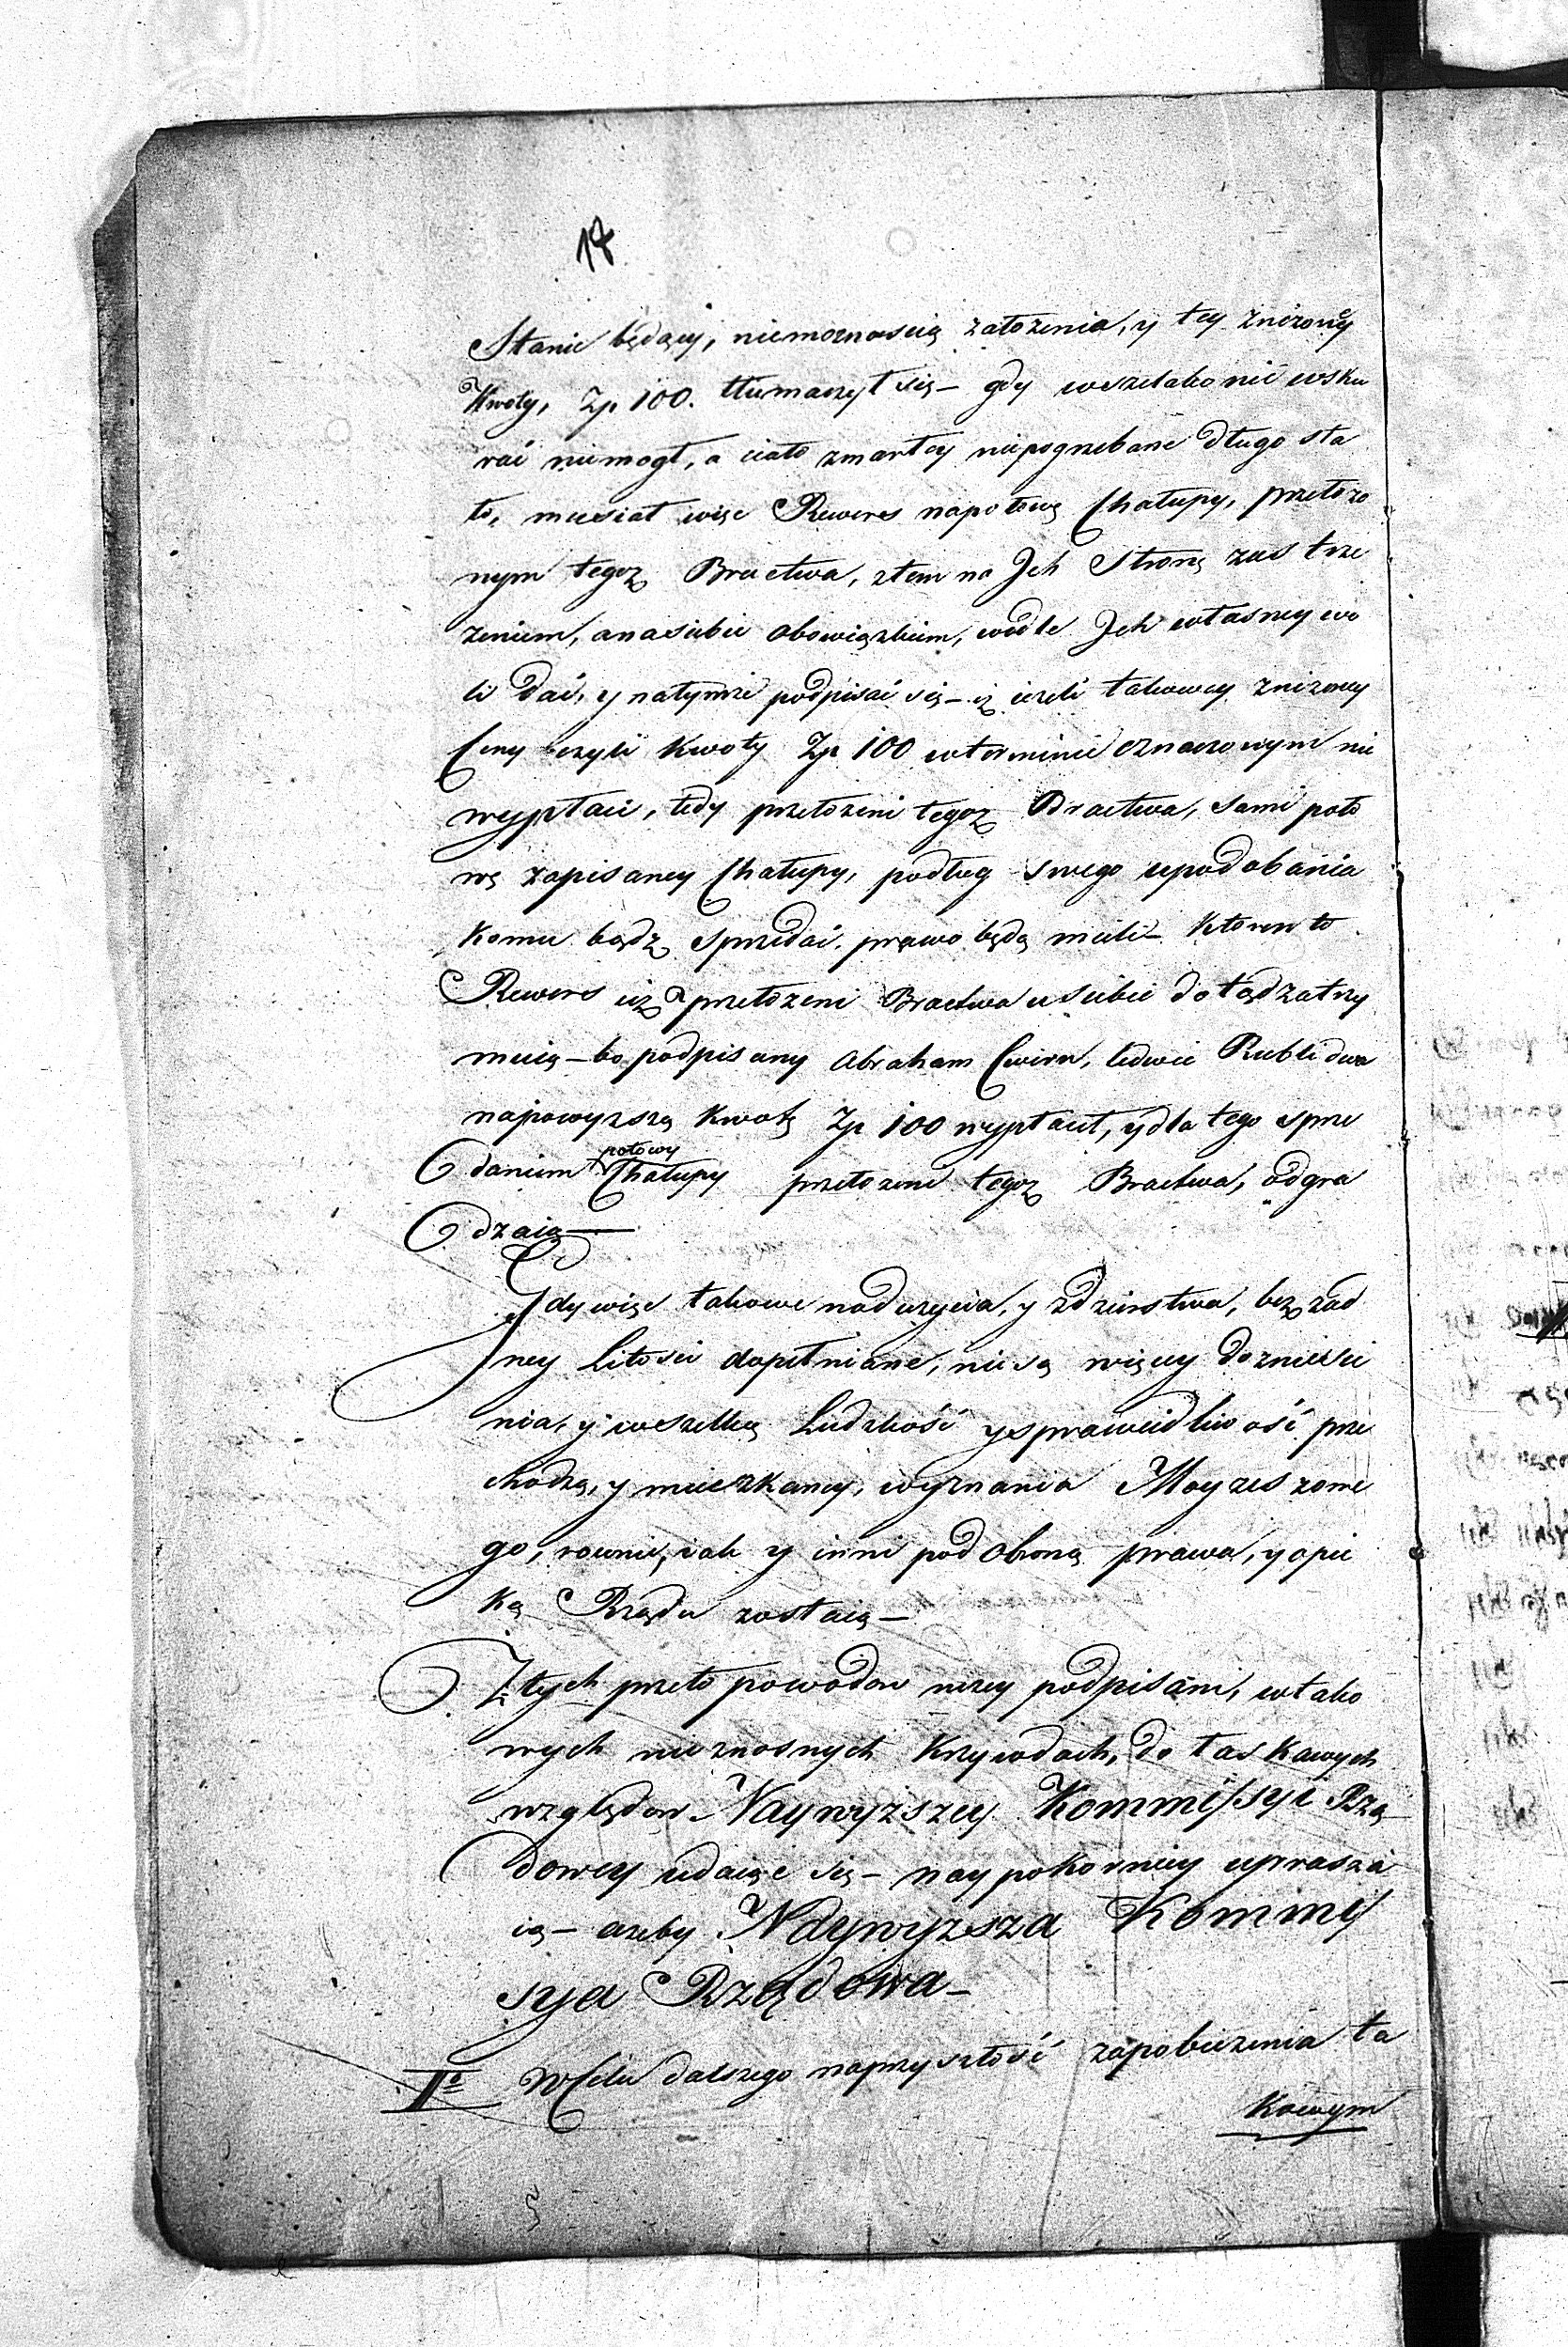 18
Stanie będący, niemoznoscią załozenia, y tey znizoney
Kwoty, Zp 100. tłumaczył się – gdy wszelako nic wsku
rać niemogł, a ciało zmarłey niepogrzebane długo sta
ło, musiał więc Rewers napołowę Chałupy, przełozo
nym tegoz Bractwa, ztem na Jch Stronę zastrze
zeniem, anasiebie obowiązkiem, wedle Jch własney wo
li dać, y natymże podpisać się – iz iezeli takowey znizoney
Ceny czyli Kwoty Zp 100 wterminie oznaczonym nie
wypłaci, tedy przełozeni tegoz Bractwa, sami poło
wę zapisaney Chałupy, podług swego upodobania
Komu bądz sprzedać, prawo będą mieli – Ktoren to
Rewers iż przełozeni Bractwa usiebie dotądzatrzy
muią – bo podpisany Abraham Cwirn, ledwie Rubli dwa
napowyzszą Kwotę Zp 100 wypłacił, ydla tego sprze
daniem połowy Chałupy przełozeni tegoz Bractwa, odgra
dzaią –
Gdy więc takowe naduzycia, y zdzierstwa, bez zad
ney Litosci dopełniane, nie są więcey do zniesie
nia, y wszelką Ludzkość ysprawiedliwość prze
chodzą, y mieszkancy, wyznania Moyzeszowe
go, rownie, iak y inni pod obroną prawa, y opie
ką Rządu zostaią –
Z tych przeto powodow nizey podpisani, wtako
wych nieznosnych Krzywdach, do łaskawych
względow Naywyższey Kommissyi Rzą
dowey udaiąc się – naypokorniey uprasza
ią – azeby Naywyzsza Kommis
sya Rządowa –
1º W Celu dalszego naprzyszłość zapobiezenia ta
Kowym